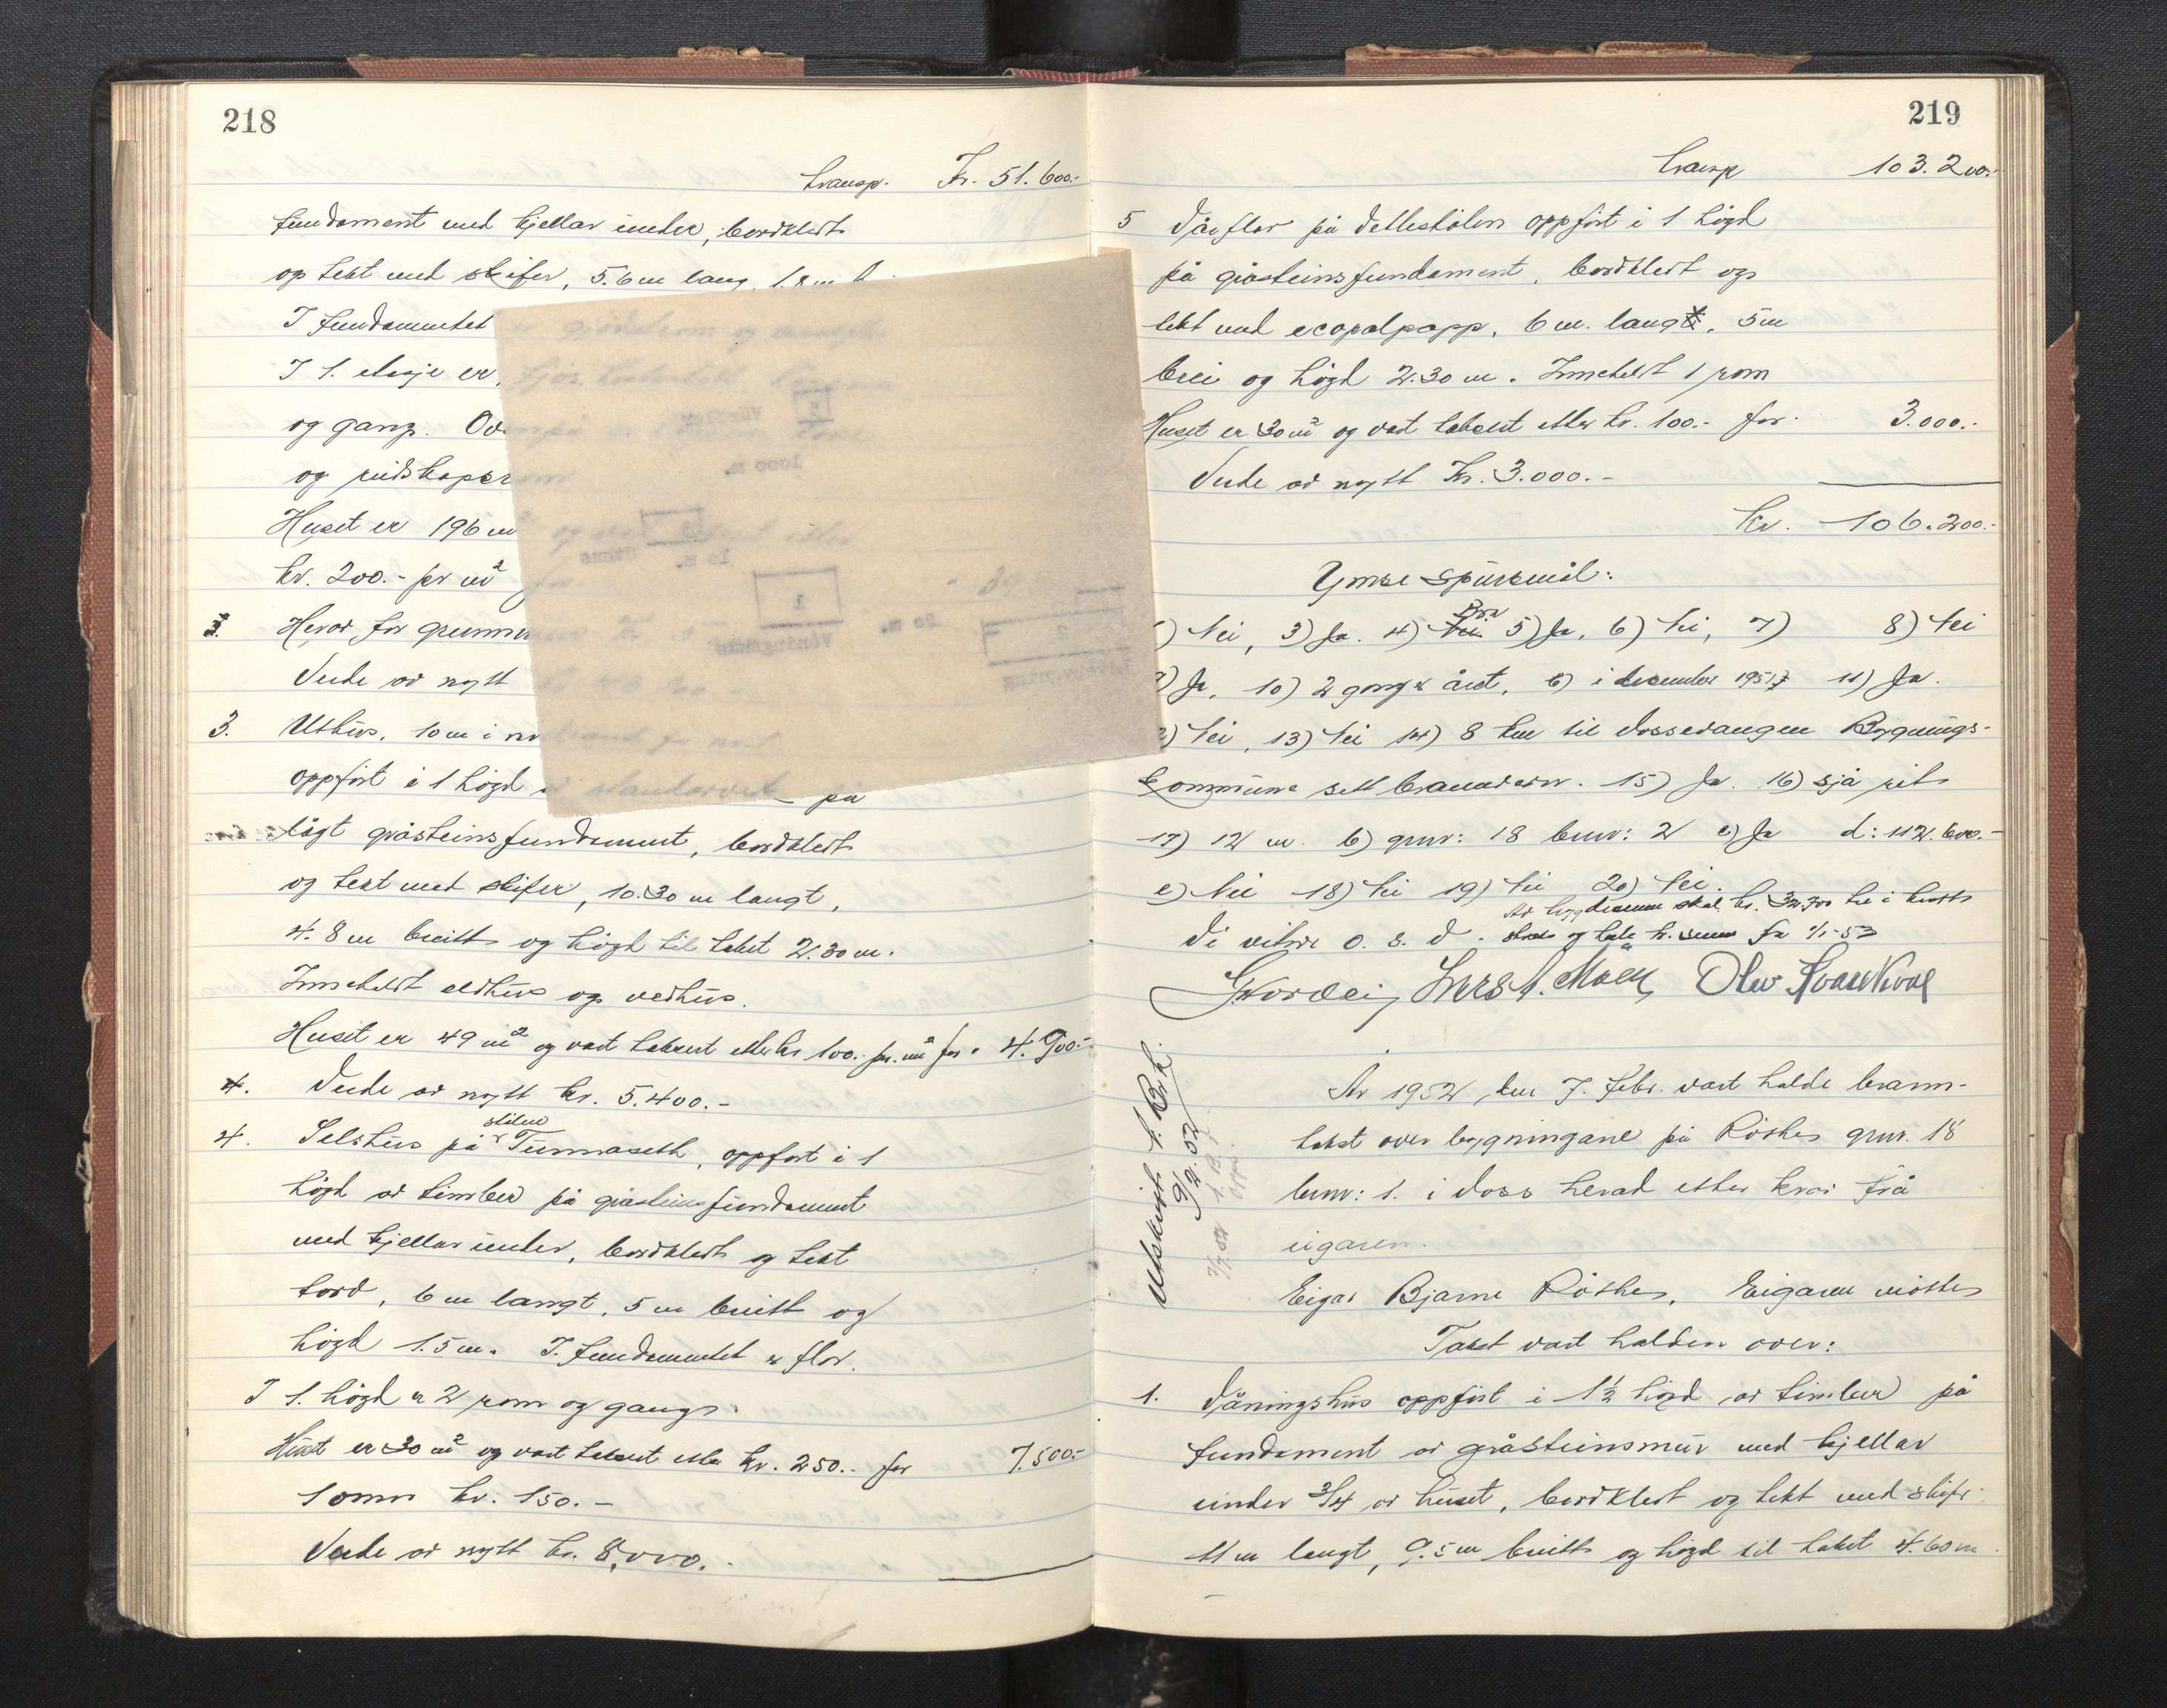 218
transp. Kr. 51.600.-
fundament med kjellar under, bordkledt
og tekt med skifer, 5.6 m lang, 1.8 m
I fundamentet
I 1. etasje er
og gang. Ov
og reidskaper
Huset er 196 m
kr. 200.- pr m²
3. Herav for grunnmur
Verde av nytt
3. Uthus, 10 m i
oppfört i 1 högd på
lågt gråsteinsfundament, bordkledt
og tekt med skifer, 10.30 m langt,
4.8 m breitt og högd til taket 2.30 m.
Inneheldt eldhus og vedhus.
Huset er 49 m² og vart taksert etter kr 100.- pr. m² for. 4.900.-
4. Verde av nytt kr. 5.400.-
stölen
4. Selshus på Tunnaseth, oppfört i 1
högd av timber på gråsteinsfundament
med kjellar under, bordkledt og tekt
tord, 6 m langt, 5 m breitt og
högd 1.5 m. I fundamentet er flor.
I 1. högd er 2 rom og gang.
Huset er 30 m² og vart taksert etter kr. 250.- for 7.500.-
1 omn kr. 150.-
Verde av nytt kr. 8.000.-
219
transp 103.200.-
5 Vårflor på oppfört i 1 högd
på gråsteinsfundament, bordkledt og
tekt med ecopalpapp, 6 m. lang, 5 m
brei og högd 2.30 m. Inneheldt 1 rom
Huset er 30 m² og vart taksert etter kr. 100.- for 3.000.-
Verde av nytt Kr. 3.000.-
kr. 106.200.-
Ymse spursmål:
) Nei, 3) Ja. 4) Bra 5) Ja, 6) Nei, 7) 8) Nei
) Ja, 10) 2 gong i året, b) i desember 1951 11) Ja.
) Nei, 13) Nei 14) 8 km til Vossevangen Bygnings-
kommune sitt brannvern. 15) Ja. 16) sjå rits
17) 12 m. b) gnr: 18 bnr: 2 c) Ja d: 112.600.-
e) Nei 18) Nei 19) Nei 20) Nei.
Av byggdesumm skal kr. 32.700
Vi vitnar o. s. v. fra 1/1-53
Lars A. Mæn, Olav
Utskrift t. Brk.
9/2. 52
År 1952, den 7. febr. vart halde brann-
takst over bygningane på Röthe gnr. 18
bnr: 1. i Voss herad etter krav frå
eigaren.
Eigar Bjarne Röthe, Eigaren mötte
Takst vart halden over:
1. Våningshus oppfört i 1½ högd av timber på
fundament av gråsteinsmur med kjellar
under 3/4 av huset, bordkledt og tekt med skifer
11 m langt, 9.5 m breitt og högd til taket 4.60 m.
1
Våningshus
20 m.
10 m.
1000 m.